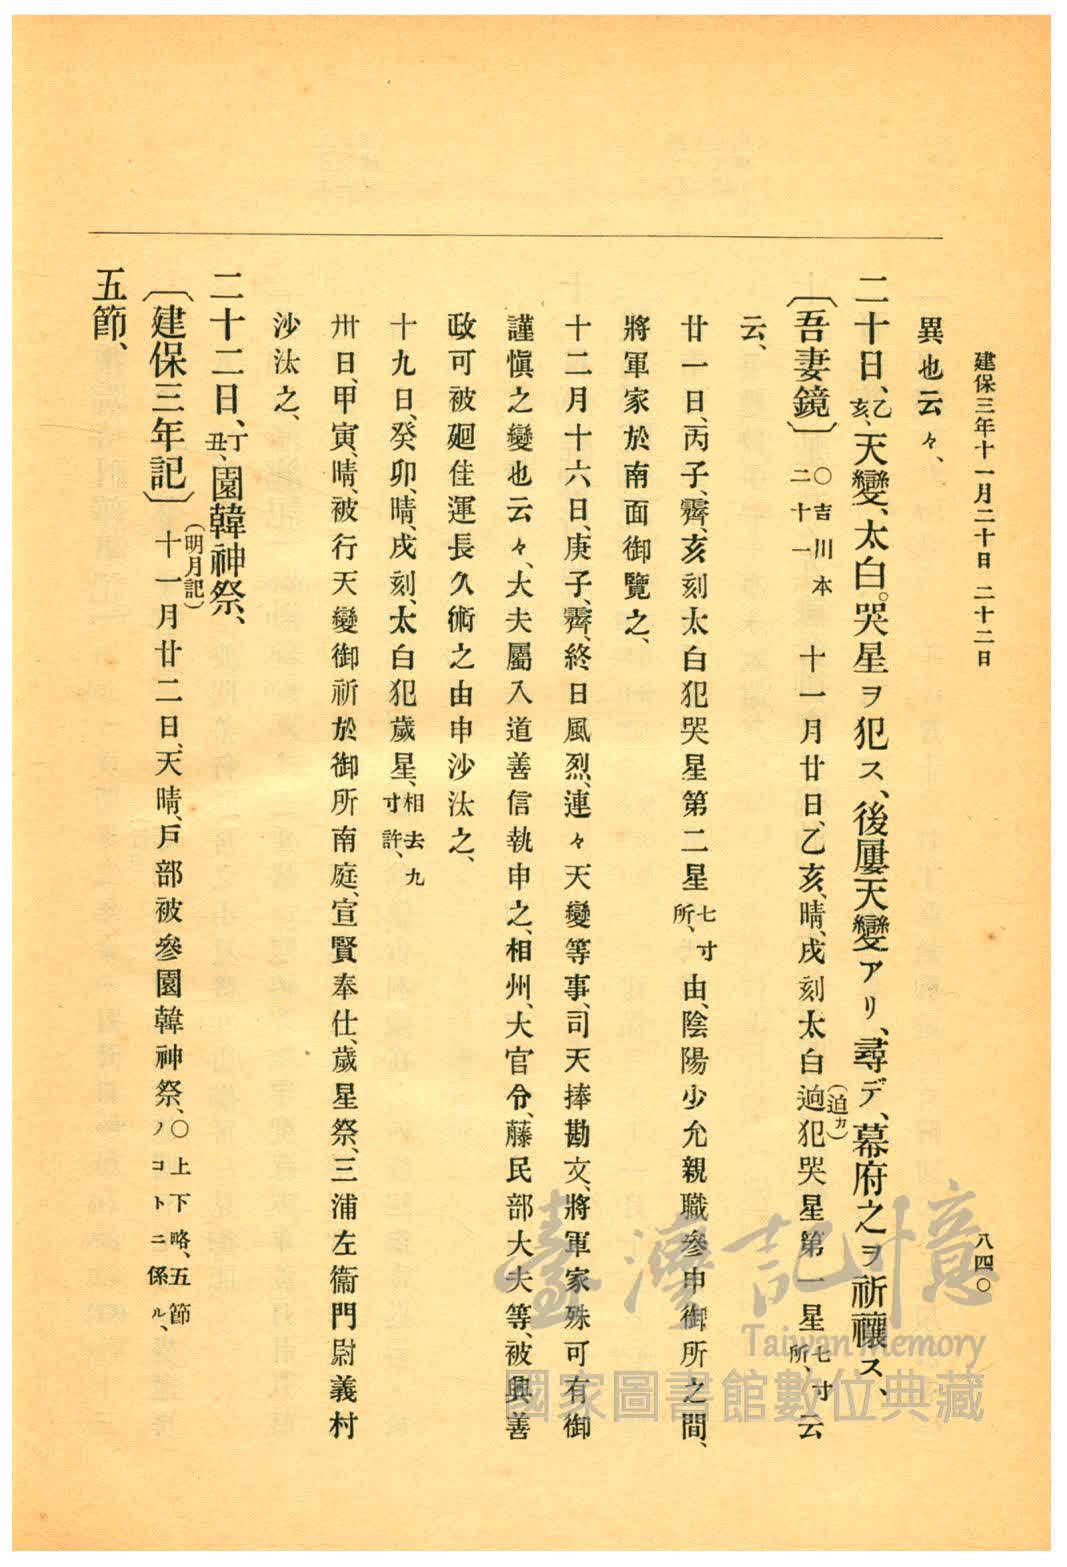 建保三年十一月二十日 二十二日
八四〇
異也云々、
二十日、乙亥、天變、太白。哭星ヲ犯ス、後屢天變アリ、尋デ、幕府之ヲ祈禳ス、
〔吾妻鏡〕 〇吉川本二十一 十一月廿日、乙亥、晴、戌刻太白逈(迫カ)犯哭星第一星七寸所、云
云、
廿一日、丙子、霽、亥刻太白犯哭星第二星七寸所、由、陰陽少允親職參申御所之間、
將軍家於南面御覽之、
十二月十六日、庚子、霽、終日風烈、連々天變等事、司天捧勘文、將軍家殊可有御
謹愼之變也云々、大夫屬入道善信執申之、相州、大官令、藤民部大夫等、被興善
政可被廻佳運長久術之由申沙汰之、
十九日、癸卯、晴、戌刻、太白犯歲星、相去九寸許、
卅日、甲寅、晴、被行天變御祈於御所南庭、宣賢奉仕、歲星祭、三浦左衞門尉義村
沙汰之、
二十二日、丁丑、園韓神祭、
〔建保三年記〕(明月記) 十一月廿二日、天晴、戶部被參園韓神祭、〇上下略、五節ノコトニ係ル、
五節、
臺灣記憶
Taiwan Memory
國家圖書館數位典藏